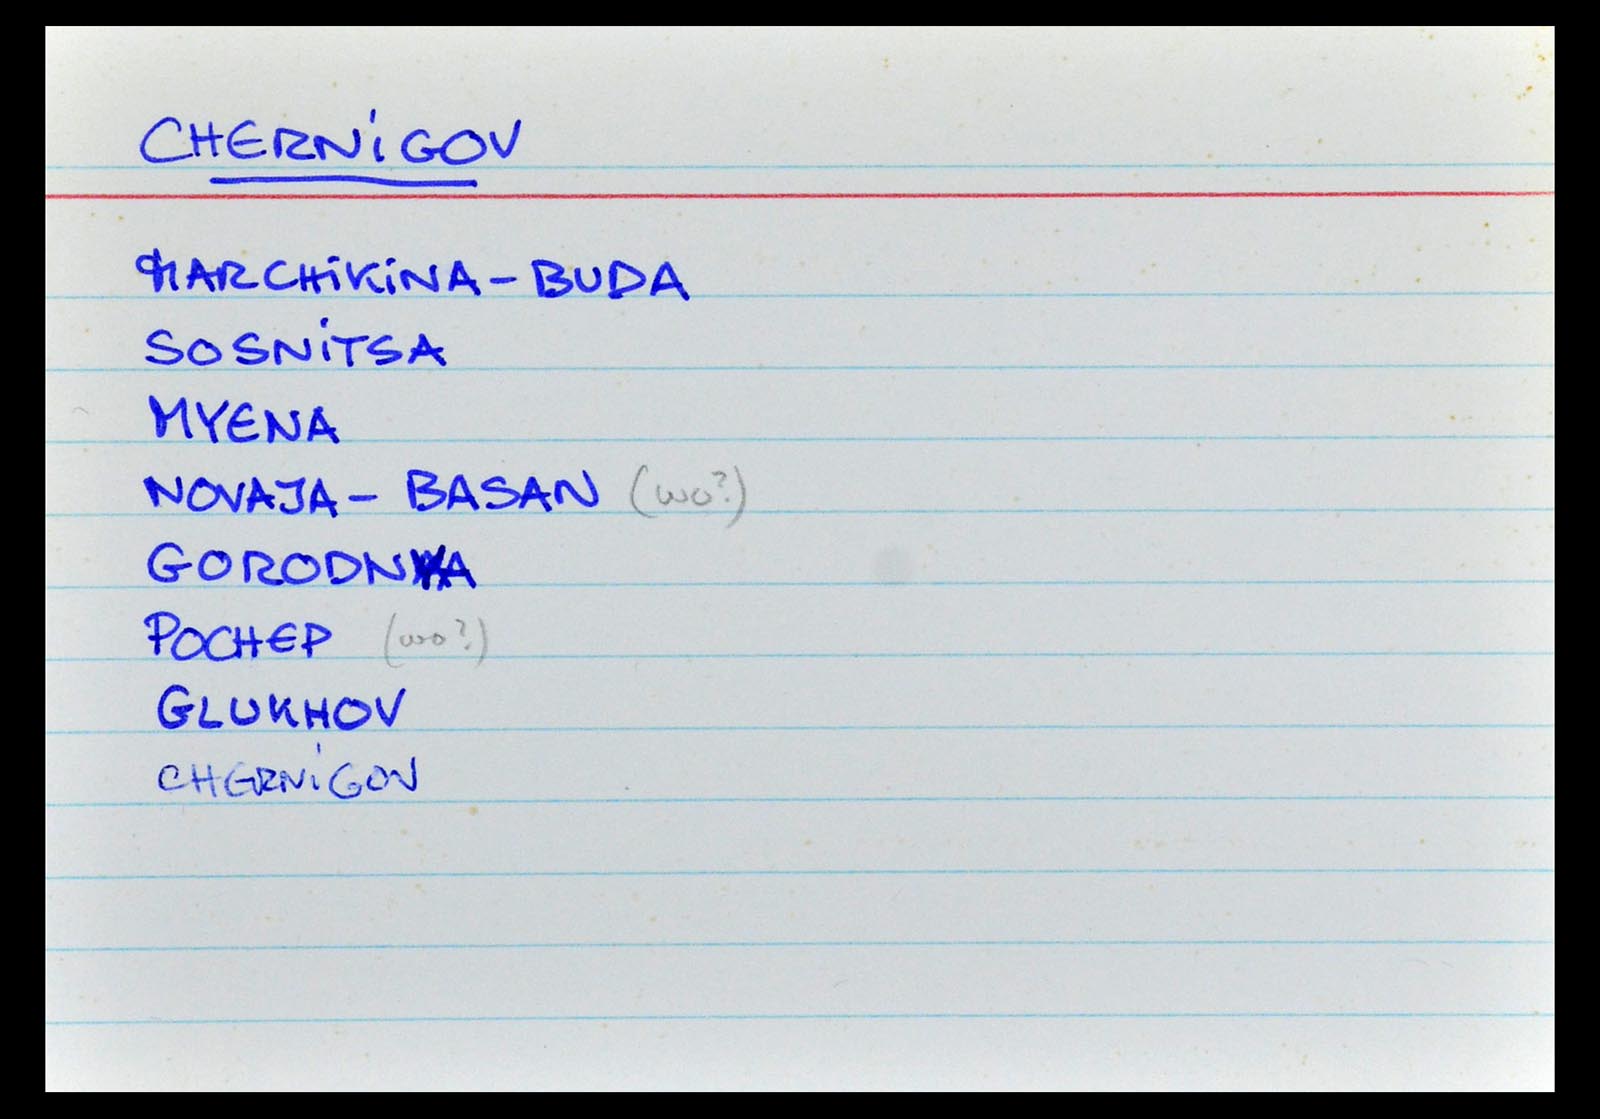 CHERNiGOV
MARCHiKiNA-BUDA
SOSNiTSA
MYENA
NOVAJA- BASAN (wo?)
GORODNYA
POCHEP (wo?)
GLUKHOV
CHERNiGOV